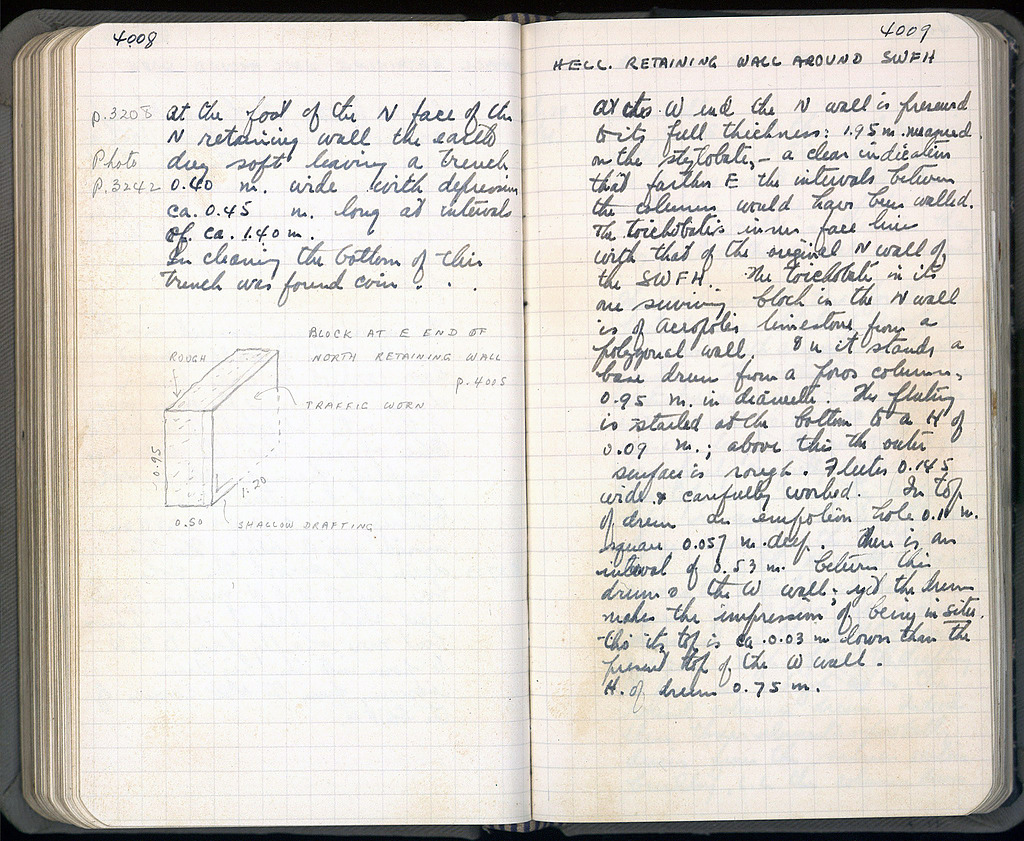 4008
p.3208
Photo
p.3242
at the foot of the N face of the
N retaining wall the earth
dug soft leaving a trench
0.40 m. wide with depression
ca. 0.45 m. long at intervals
of ca. 1.40 m.
In cleaning the bottom of this
trench was found coin . . .
BLOCK AT E END OF
NORTH RETAINING WALL
p. 4005
ROUGH
TRAFFIC WORN
0.95
1.20
0.50
SHALLOW DRAFTING
4009
HELL. RETAINING WALL AROUND SWFH
At the W end the N wall is preserved
to its full thickness: 1.95 m. measured
on the stylobate, – a clear indication
that farther E the intervals between
the columns would have been walled.
The toichobate's inner face lines
with that of the original N wall of
the SWFH. The toichobate in its
one surviving block in the N wall
is of Acropolis limestone from a
polygonal wall. On it stands a
base drum from a poros column,
0.95 m. in diameter. The fluting
is started at the bottom to a H of
0.09 m.; above this the outer
surface is rough. Flutes 0.145
wide & carefully worked. In top
of drum an empolion hole 0.10 m.
square 0.057 m. deep. There is an
interval of 0.53 m. between this
drum & the W wall; yet the drum
makes the impression of being in situ.
tho its top is ca. 0.03 m down than the
present top of the W wall.
H. of drum 0.75 m.